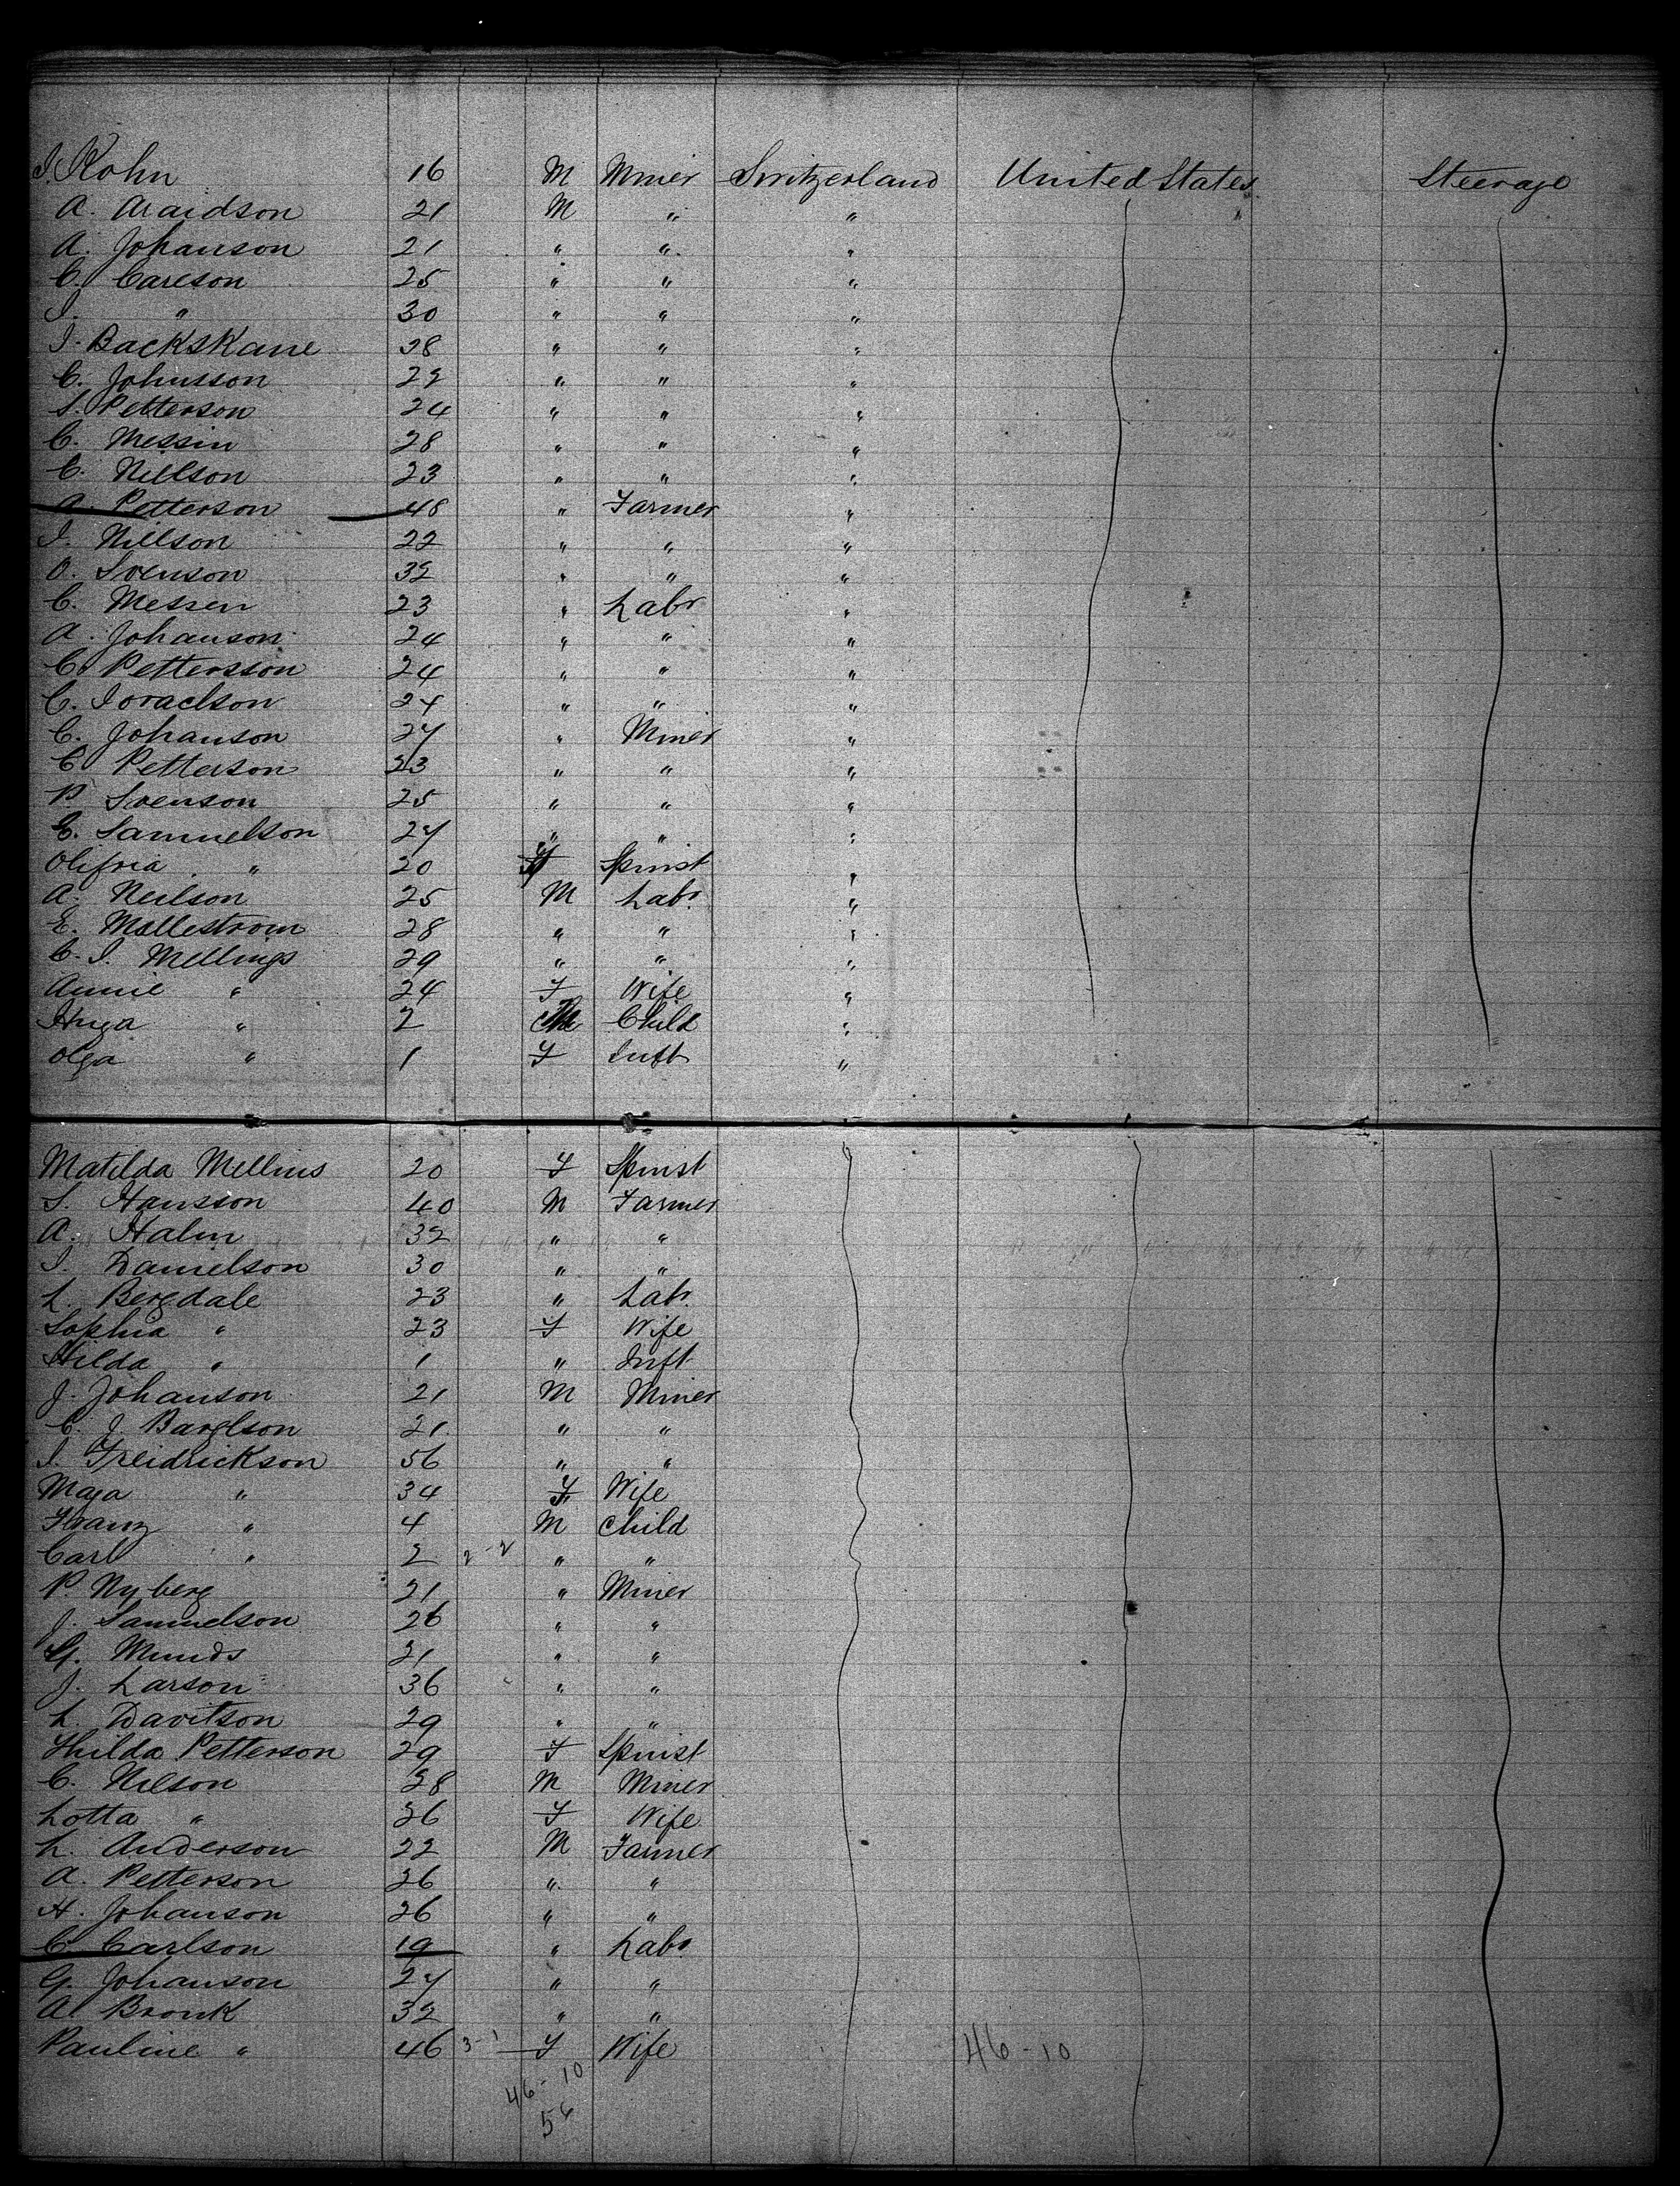 I. Kohn 16 M Miner Switzerland United States Steerage
A. Araidson 21 M " "
A. Johanson 21 " " "
C. Carlson 25 " " "
I. " 30 " " "
I. Backskane 38 " " "
C. Johnsson 22 " " "
S. Petterson 24 " " "
C. Messin 28 " " "
C. Nillson 23 " " "
A. Petterson 48 " Farmer "
I. Nillson 22 " " "
O. Svenson 32 " " "
C. Messen 23 " Labr "
A. Johanson 24 " " "
C. Pettersson 24 " " "
C. 24 " " "
C. Johanson 27 " Miner "
C. Petterson 23 " " "
P. Svenson 25 " " "
E. Samuelson 27 " " "
" 20 F Spinst "
A. Neilson 25 M Labr "
E. Mallestrom 28 " " "
C. I. Mellings 29 " " "
Annie " 24 F Wife "
Huga " 2 M Child "
Olga " 1 F Inft "
Matilda Mellins 20 F Spinst
S. Hansson 40 M Farmer
A. Halm 32 " "
I. Danielson 30 " "
L. Bergdale 23 " Labr
Sophia " 23 F Wife
Hilda " 1 " Inft
J. Johanson 21 M Miner
C. J. Barglson 21 " "
I. Freidrickson 56 " "
Maja " 34 F Wife
Franz " 4 M Child
Carl " 2 2-2 " "
P. Nyberg 21 " Miner
J. Samuelson 26 " "
G. Munds 21 " "
J. Larson 36 " "
L. Davitson 29 " "
Hilda Petterson 29 F Spinst
C. Nilson 28 M Miner
Lotta " 26 F Wife
L. Anderson 22 M Farmer
A. Petterson 26 " "
H. Johanson 26 " "
C. Carlson 19 " Labr
G. Johanson 27 " "
A. Bronk 32 " "
Pauline " 46 3-1 F Wife 46-10
46-10
56